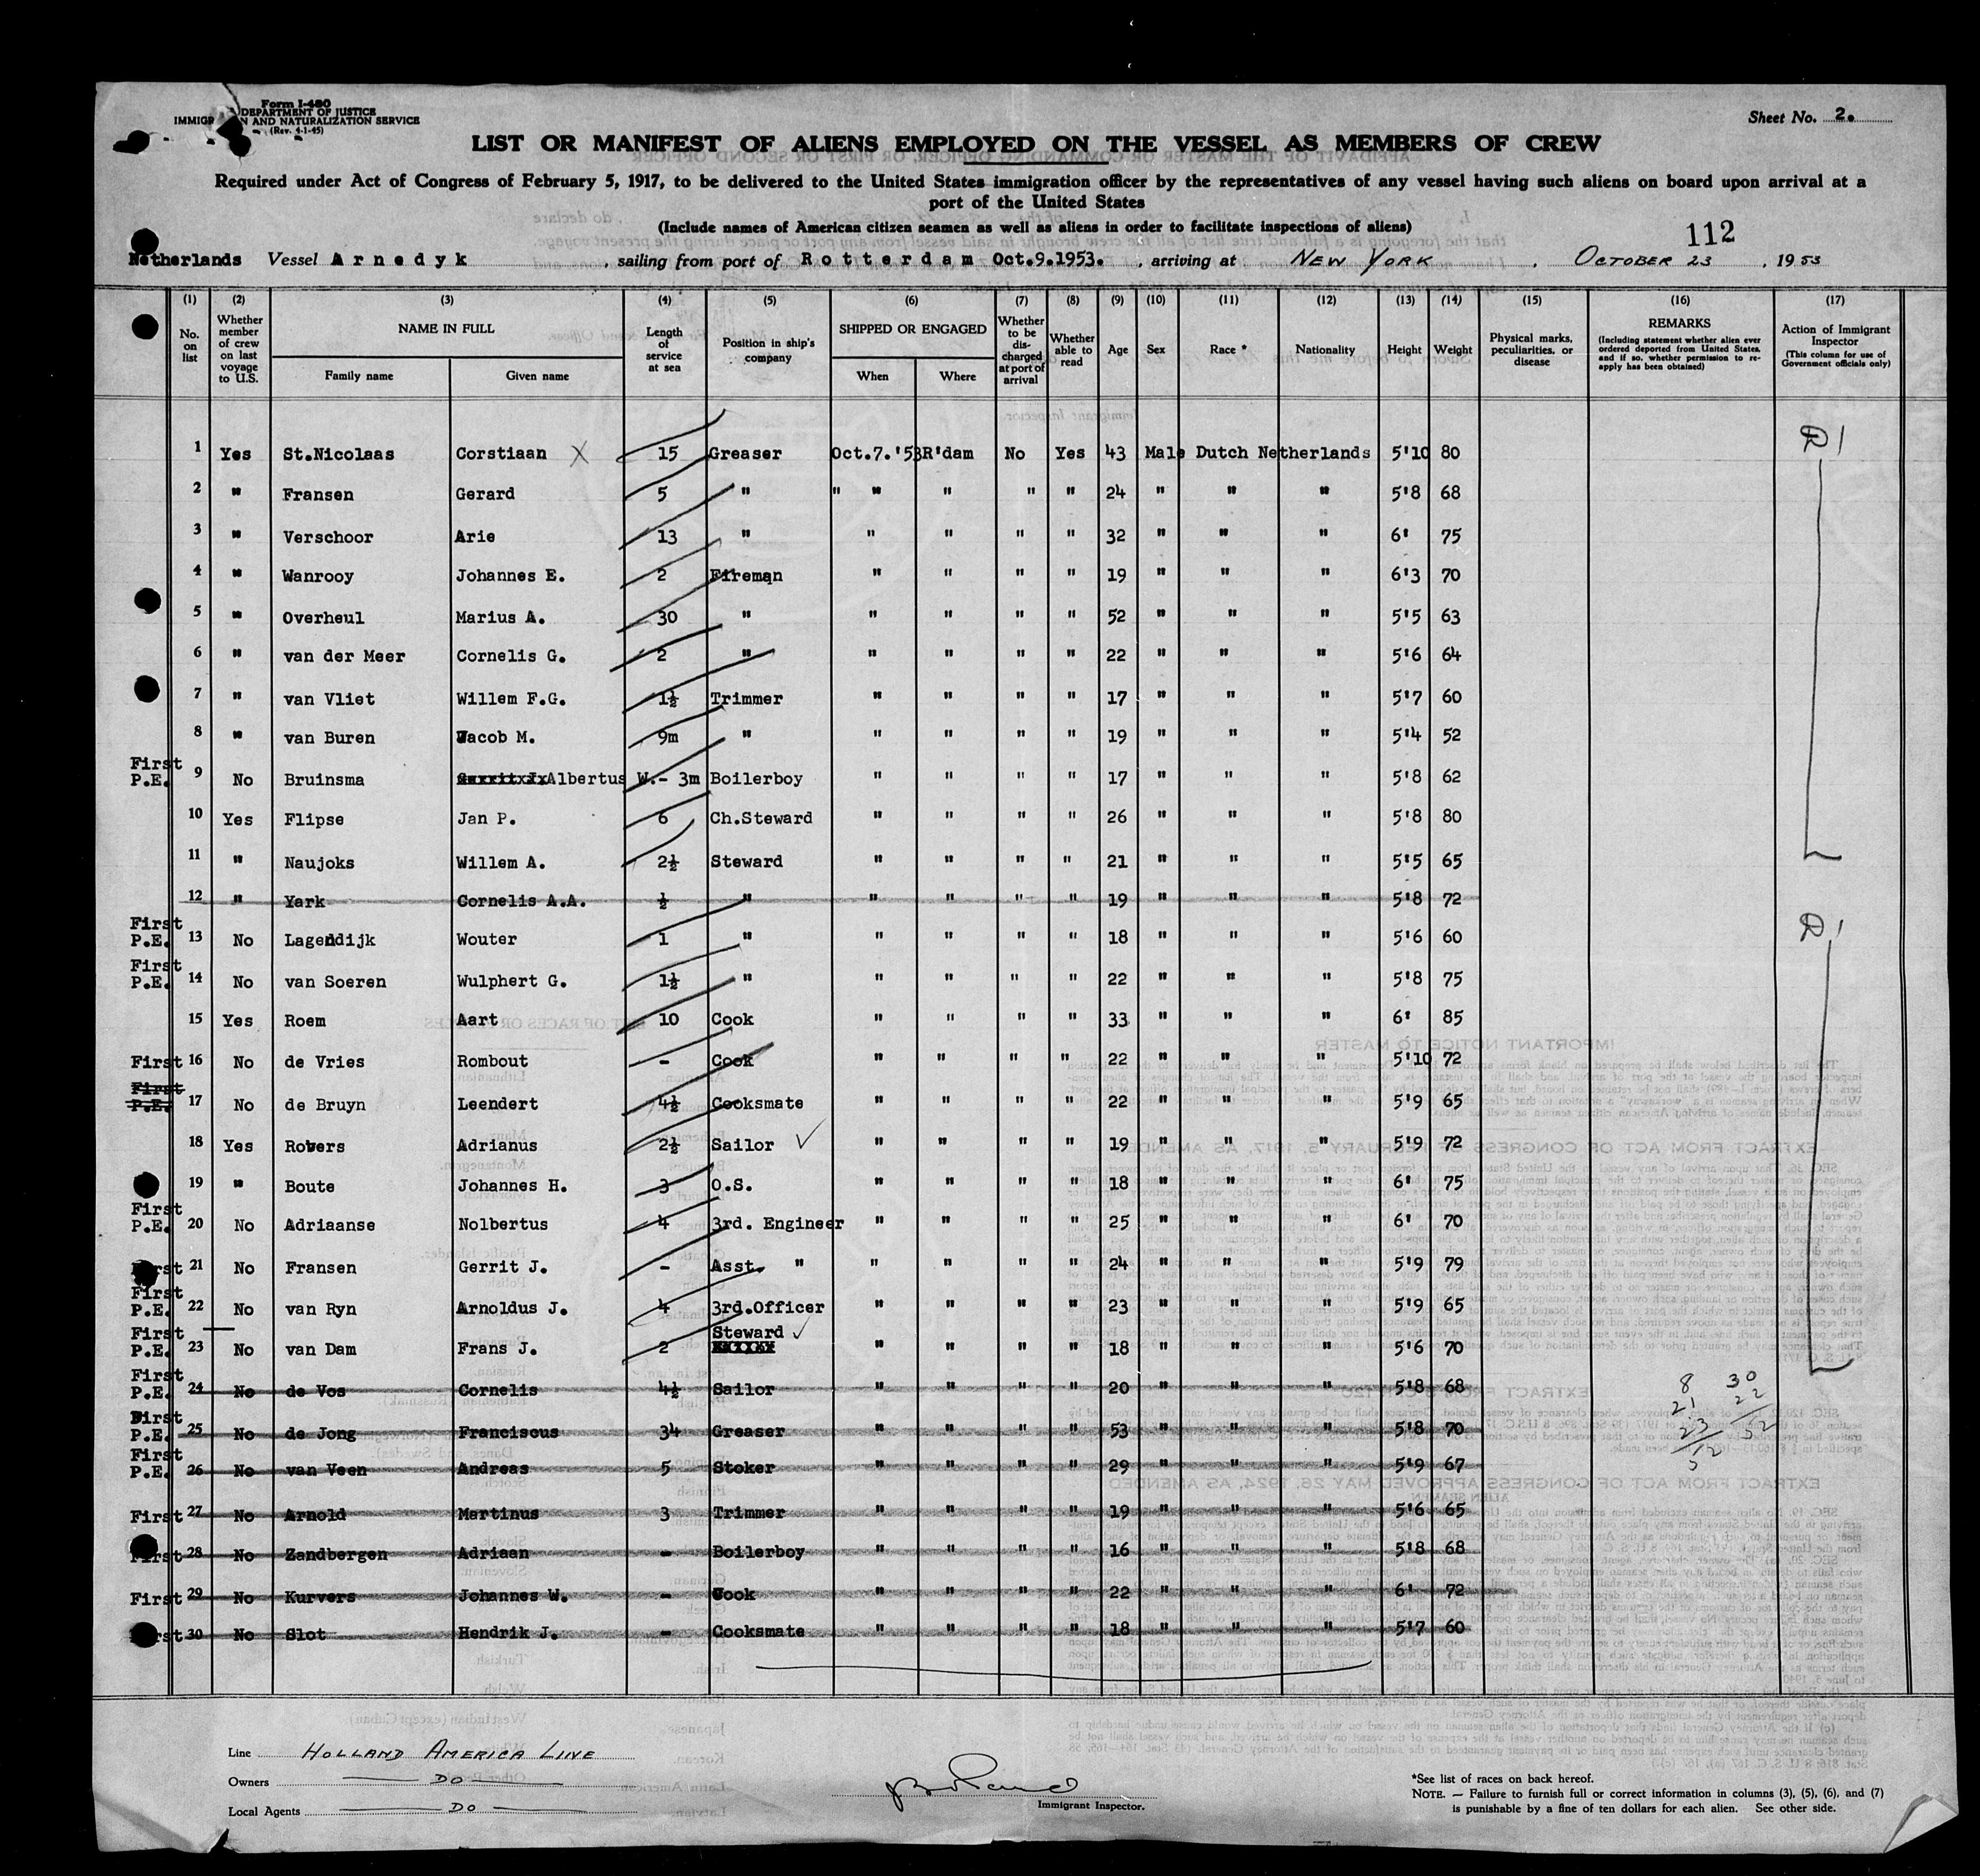 Form I-480
DEPARTMENT OF JUSTICE
IMMIGR N AND NATURALIZATION SERVICE
(Rev. 4-1-45)
Sheet No. 2.
LIST OR MANIFEST OF ALIENS EMPLOYED ON THE VESSEL AS MEMBERS OF CREW
Required under Act of Congress of February 5, 1917, to be delivered to the United States immigration officer by the representatives of any vessel having such aliens on board upon arrival at a
port of the United States
(Include names of American citizen seamen as well as aliens in order to facilitate inspections of aliens)
112
Netherlands Vessel Arnedyk, sailing from port of Rotterdam Oct.9.1953., arriving at NEW YORK, OCTOBER 23, 1953
(1) (2) (3) (4) (5) (6) (7) (8) (9) (10) (11) (12) (13) (14) (15) (16) (17)
No. on list
Whether member of crew on last voyage to U.S.
NAME IN FULL
Family name Given name
Length of service at sea
Position in ship's company
SHIPPED OR ENGAGED
When Where
Whether to be discharged at port of arrival
Whether able to read
Age Sex Race * Nationality Height Weight
Physical marks, peculiarities, or disease
REMARKS
(Including statement whether alien ever ordered deported from United States, and if so, whether permission to reapply has been obtained)
Action of Immigrant Inspector
(This column for use of Government officials only)
1 Yes St.Nicolaas Corstiaan X 15 Greaser Oct.7.'53 R'dam No Yes 43 Male Dutch Netherlands 5'10 80 D1
2 " Fransen Gerard 5 " " " " " " 24 " " " 5'8 68
3 " Verschoor Arie 13 " " " " " 32 " " " 6' 75
4 " Wanrooy Johannes E. 2 Fireman " " " " 19 " " " 6'3 70
5 " Overheul Marius A. 30 " " " " " 52 " " " 5'5 63
6 " van der Meer Cornelis G. 2 " " " " " 22 " " " 5'6 64
7 " van Vliet Willem F.G. 1½ Trimmer " " " " 17 " " " 5'7 60
8 " van Buren Jacob M. 9m " " " " " 19 " " " 5'4 52
First P.E. 9 No Bruinsma Albertus W.- 3m Boilerboy " " " " 17 " " " 5'8 62
10 Yes Flipse Jan P. 6 Ch.Steward " " " " 26 " " " 5'8 80
11 " Naujoks Willem A. 2½ Steward " " " " 21 " " " 5'5 65
12 " Yark Cornelis A.A. ½ " " " " " 19 " " " 5'8 72
First P.E. 13 No Lagendijk Wouter 1 " " " " " 18 " " " 5'6 60 D1
First P.E. 14 No van Soeren Wulphert G. 1½ " " " " " 22 " " " 5'8 75
15 Yes Roem Aart 10 Cook " " " " 33 " " " 6' 85
First 16 No de Vries Rombout - Cook " " " " 22 " " " 5'10 72
First P.E. 17 No de Bruyn Leendert 4½ Cooksmate " " " " 22 " " " 5'9 65
18 Yes Rovers Adrianus 2½ Sailor ✓ " " " " 19 " " " 5'9 72
19 " Boute Johannes H. 3 O.S. " " " " 18 " " " 6' 75
First P.E. 20 No Adriaanse Nolbertus 4 3rd. Engineer " " " " 25 " " " 6' 70
First 21 No Fransen Gerrit J. - Asst. " " " " " 24 " " " 5'9 79
First P.E. 22 No van Ryn Arnoldus J. 4 3rd.Officer " " " " 23 " " " 5'9 65
First P.E. 23 No van Dam Frans J. 2 Steward ✓ " " " " 18 " " " 5'6 70
First P.E. 24 No de Vos Cornelis 4½ Sailor " " " " 20 " " " 5'8 68
First P.E. 25 No de Jong Franciscus 34 Greaser " " " " 53 " " " 5'8 70
First P.E. 26 No van Veen Andreas 5 Stoker " " " " 29 " " " 5'9 67
First 27 No Arnold Martinus 3 Trimmer " " " " 19 " " " 5'6 65
First 28 No Zandbergen Adriaan - Boilerboy " " " " 16 " " " 5'8 68
First 29 No Kurvers Johannes W. - Cook " " " " 22 " " " 6' 72
First 30 No Slot Hendrik J. - Cooksmate " " " " 18 " " " 5'7 60
8 30
21 22
23 52
52
Line HOLLAND AMERICA LINE
Owners DO
Local Agents DO
Immigrant Inspector.
*See list of races on back hereof.
NOTE. — Failure to furnish full or correct information in columns (3), (5), (6), and (7)
is punishable by a fine of ten dollars for each alien. See other side.